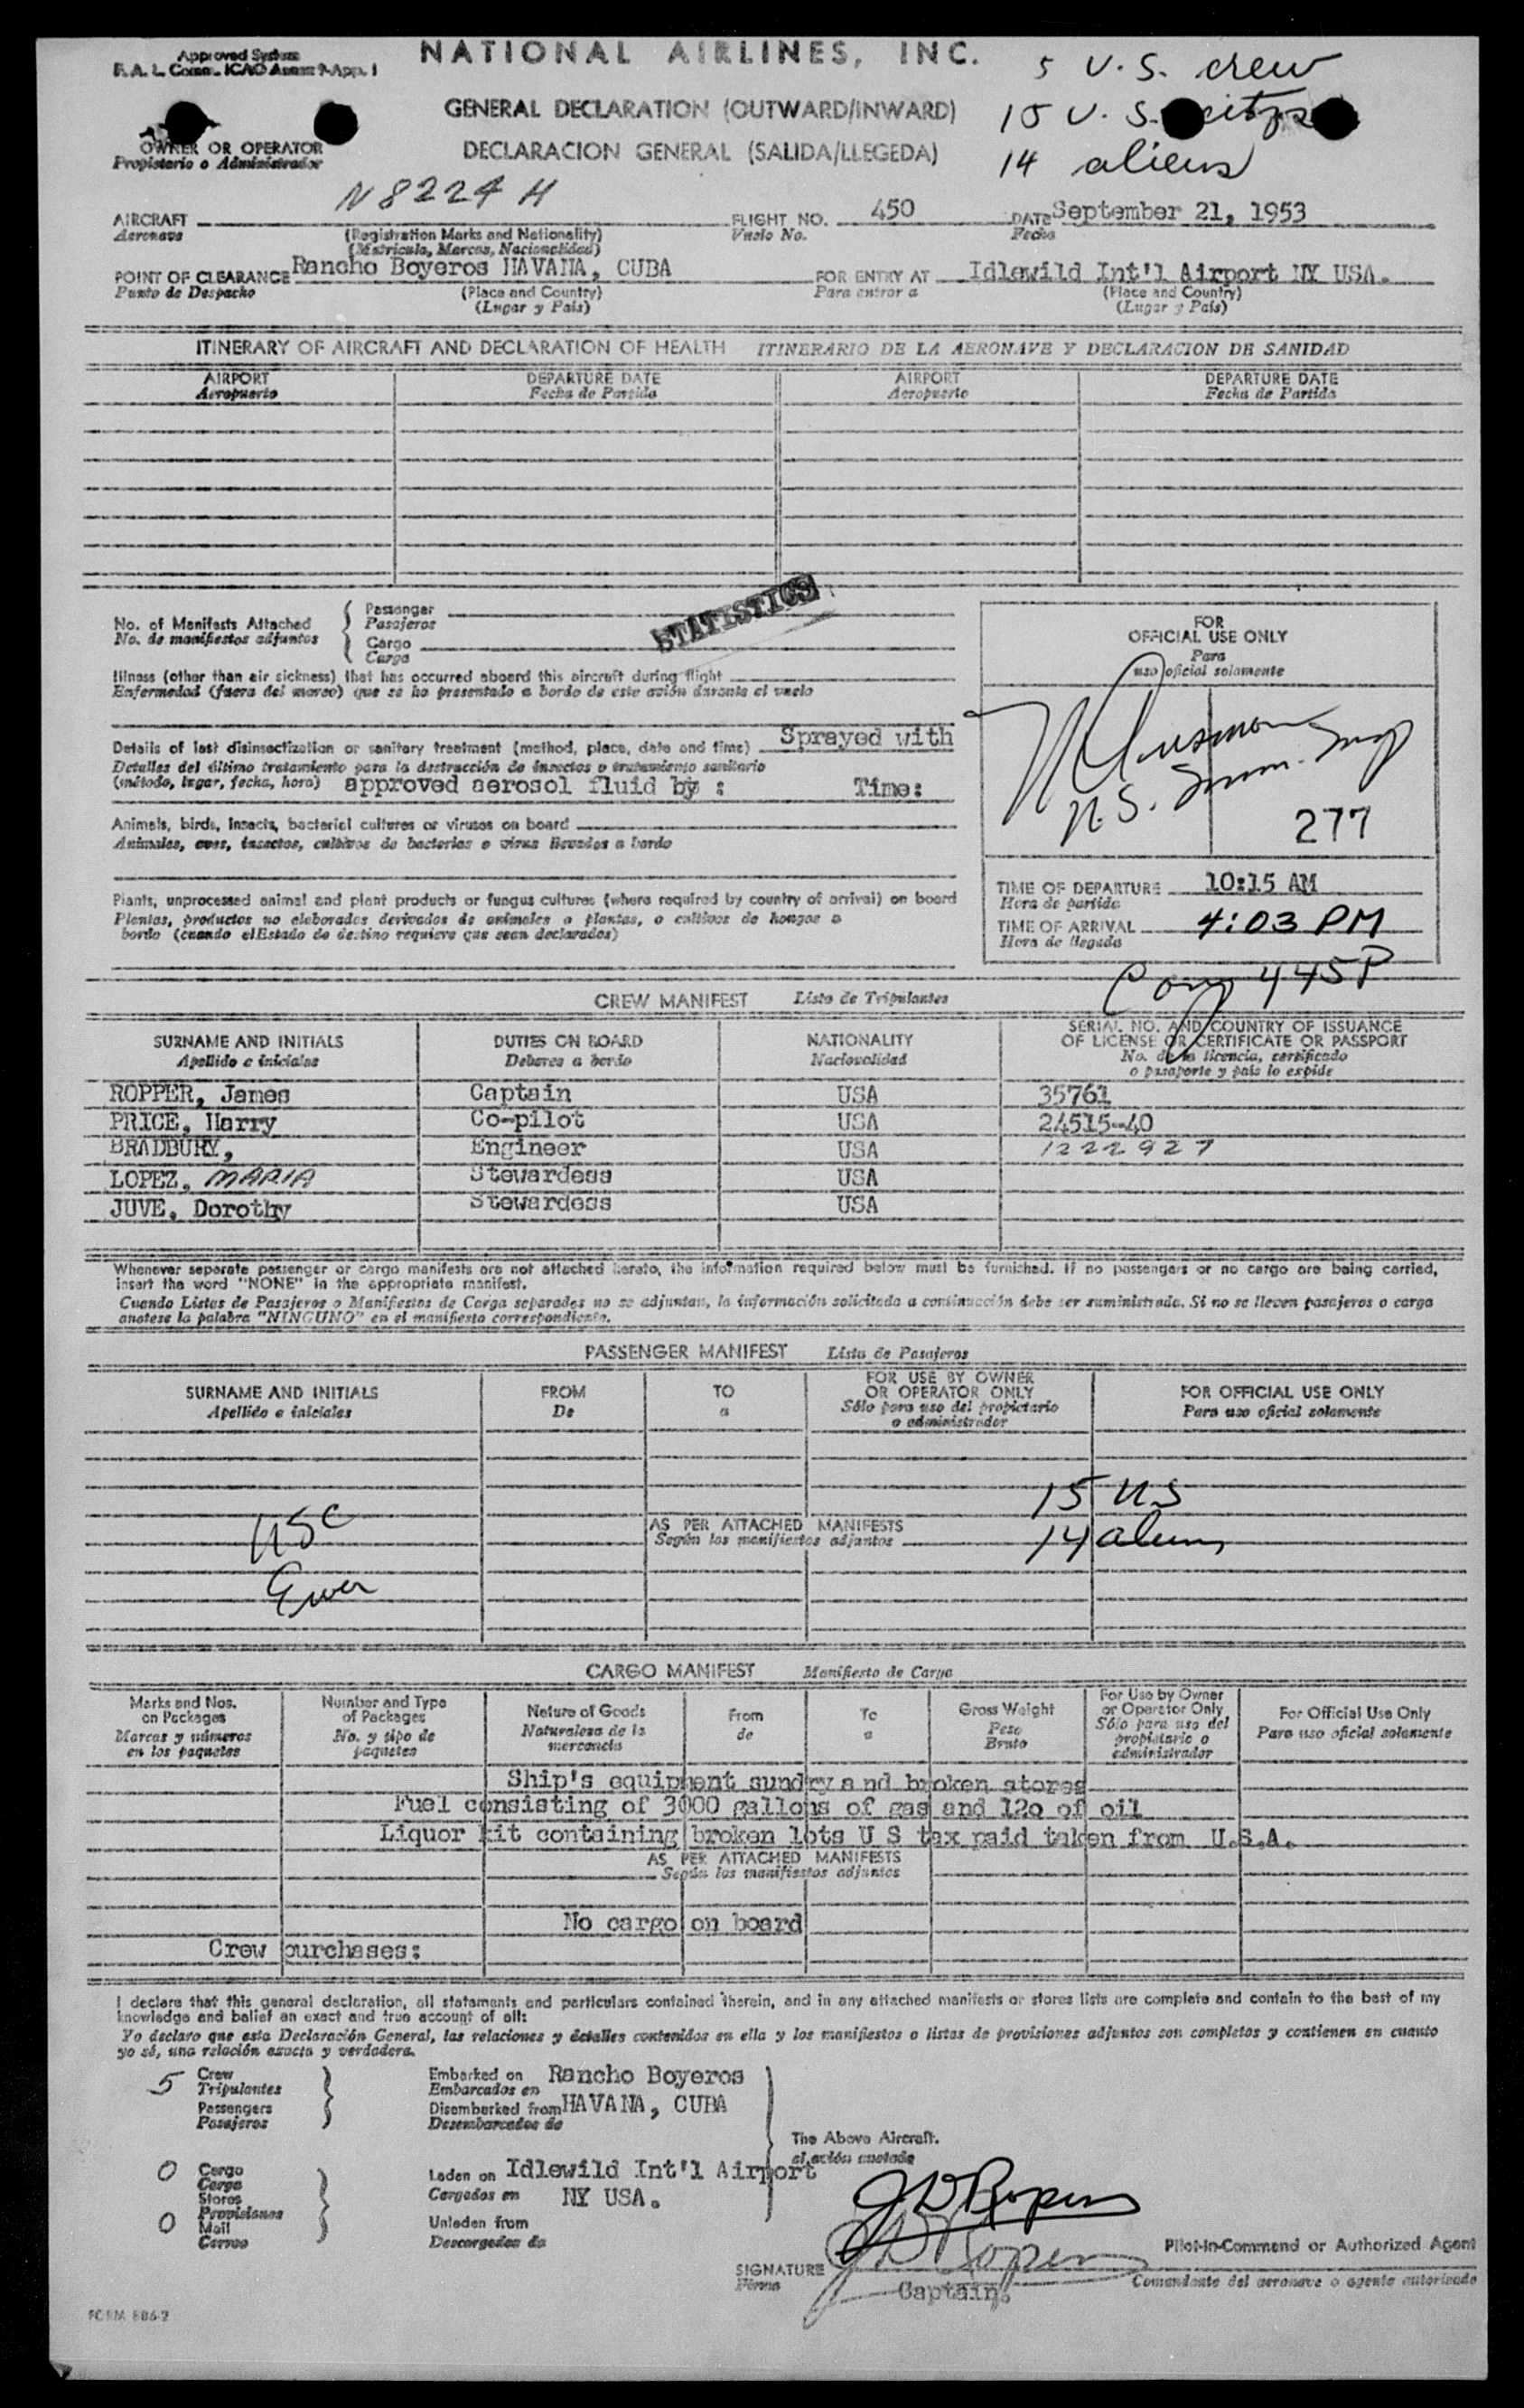 Approved System
F. A. L. Comm. ICAO Annex 9-App. 1
NATIONAL AIRLINES, INC.
5 U.S. crew
GENERAL DECLARATION (OUTWARD/INWARD)
15 U.S. citzs
DECLARACION GENERAL (SALIDA/LLEGEDA)
14 aliens
OWNER OR OPERATOR
Propietario o Administrador
AIRCRAFT N8224H FLIGHT NO. 450 DATE September 21, 1953
Aeronave (Registration Marks and Nationality) Vuelo No. Fecha
(Matricula, Marcas, Nacionalidad)
POINT OF CLEARANCE Rancho Boyeros HAVANA, CUBA FOR ENTRY AT Idlewild Int'l Airport NY USA.
Punto de Despacho (Place and Country) Para entrar a (Place and Country)
(Lugar y País) (Lugar y País)
ITINERARY OF AIRCRAFT AND DECLARATION OF HEALTH ITINERARIO DE LA AERONAVE Y DECLARACION DE SANIDAD
AIRPORT DEPARTURE DATE AIRPORT DEPARTURE DATE
Aeropuerto Fecha de Partida Aeropuerto Fecha de Partida
STATISTICS
No. of Manifests Attached Passenger
No. de manifiestos adjuntos Pasajeros
Cargo
Carga
FOR
OFFICIAL USE ONLY
Para
uso oficial solamente
Illness (other than air sickness) that has occurred aboard this aircraft during flight
Enfermedad (fuera del mareo) que se ha presentado a bordo de este avión durante el vuelo
Details of last disinsectization or sanitary treatment (method, place, date and time) Sprayed with
Detalles del último tratamiento para la destrucción de insectos o tratamiento sanitario
(método, lugar, fecha, hora) approved aerosol fluid by : Time:
277
Animals, birds, insects, bacterial cultures or viruses on board
Animales, aves, insectos, cultivos de bacterias o virus llevados a bordo
Plants, unprocessed animal and plant products or fungus cultures (where required by country of arrival) on board
Plantas, productos no elaborados derivados de animales o plantas, o cultivos de hongos a
bordo (cuando el Estado de destino requiere que sean declarados)
TIME OF DEPARTURE 10:15 AM
Hora de partida
TIME OF ARRIVAL 4:03 PM
Hora de llegada
445P
CREW MANIFEST Lista de Tripulantes
SURNAME AND INITIALS DUTIES ON BOARD NATIONALITY SERIAL NO. AND COUNTRY OF ISSUANCE
OF LICENSE OR CERTIFICATE OR PASSPORT
Apellido e iniciales Deberes a bordo Nacionalidad No. de la licencia, certificado
o pasaporte y país lo expide
ROPPER, James Captain USA 35761
PRICE, Harry Co-pilot USA 24515-40
BRADBURY, Engineer USA 1222927
LOPEZ, MARIA Stewardess USA
JUVE, Dorothy Stewardess USA
Whenever separate passenger or cargo manifests are not attached hereto, the information required below must be furnished. If no passengers or no cargo are being carried,
insert the word "NONE" in the appropriate manifest.
Cuando Listas de Pasajeros o Manifiestos de Carga separados no se adjuntan, la información solicitada a continuación debe ser suministrada. Si no se lleven pasajeros o carga
anotese la palabra "NINGUNO" en el manifiesto correspondiente.
PASSENGER MANIFEST Lista de Pasajeros
SURNAME AND INITIALS FROM TO FOR USE BY OWNER
OR OPERATOR ONLY FOR OFFICIAL USE ONLY
Apellido e iniciales De a Sólo para uso del propietario
o administrador Para uso oficial solamente
15 US
USC AS PER ATTACHED MANIFESTS
Según los manifiestos adjuntos 14 aliens
CARGO MANIFEST Manifiesto de Carga
Marks and Nos.
on Packages
Marcas y números
en los paquetes
Number and Type
of Packages
No. y tipo de
paquetes
Nature of Goods
Naturaleza de la
mercancía
From
de
To
a
Gross Weight
Peso
Bruto
For Use by Owner
or Operator Only
Sólo para uso del
propietario o
administrador
For Official Use Only
Para uso oficial solamente
Ship's equipment sundry and broken stores
Fuel consisting of 3000 gallons of gas and 12o of oil
Liquor kit containing broken lots U S tax paid taken from U.S.A.
AS PER ATTACHED MANIFESTS
Según los manifiestos adjuntos
No cargo on board
Crew purchases:
I declare that this general declaration, all statements and particulars contained therein, and in any attached manifests or stores lists are complete and contain to the best of my
knowledge and belief an exact and true account of all:
Yo declaro que esta Declaración General, las relaciones y detalles contenidos en ella y los manifiestos o listas de provisiones adjuntos son completos y contienen en cuanto
yo sé, una relación exacta y verdadera.
5 Crew
Tripulantes
Passengers
Pasajeros
Embarked on Rancho Boyeros
Embarcados en
Disembarked from HAVANA, CUBA
Desembarcados de
The Above Aircraft.
el avión anotado
0 Cargo
Carga
Stores
Provisiones
0 Mail
Correo
Laden on Idlewild Int'l Airport
Cargados en NY USA.
Unladen from
Descargados de
JD Roper
JD Roper
SIGNATURE
Firma
Captain.
Pilot-in-Command or Authorized Agent
Comandante del aeronave o agente autorizado
FORM 886-2